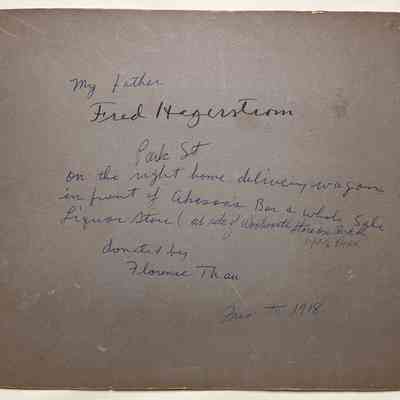 My Father
Fred Hagerstrom
Park St
on the right home delivery wagon
in front of Bar & Whole Sale
Liquor Store ( at site of Woolworth Store on Park
donated by
Florence Thau
1918